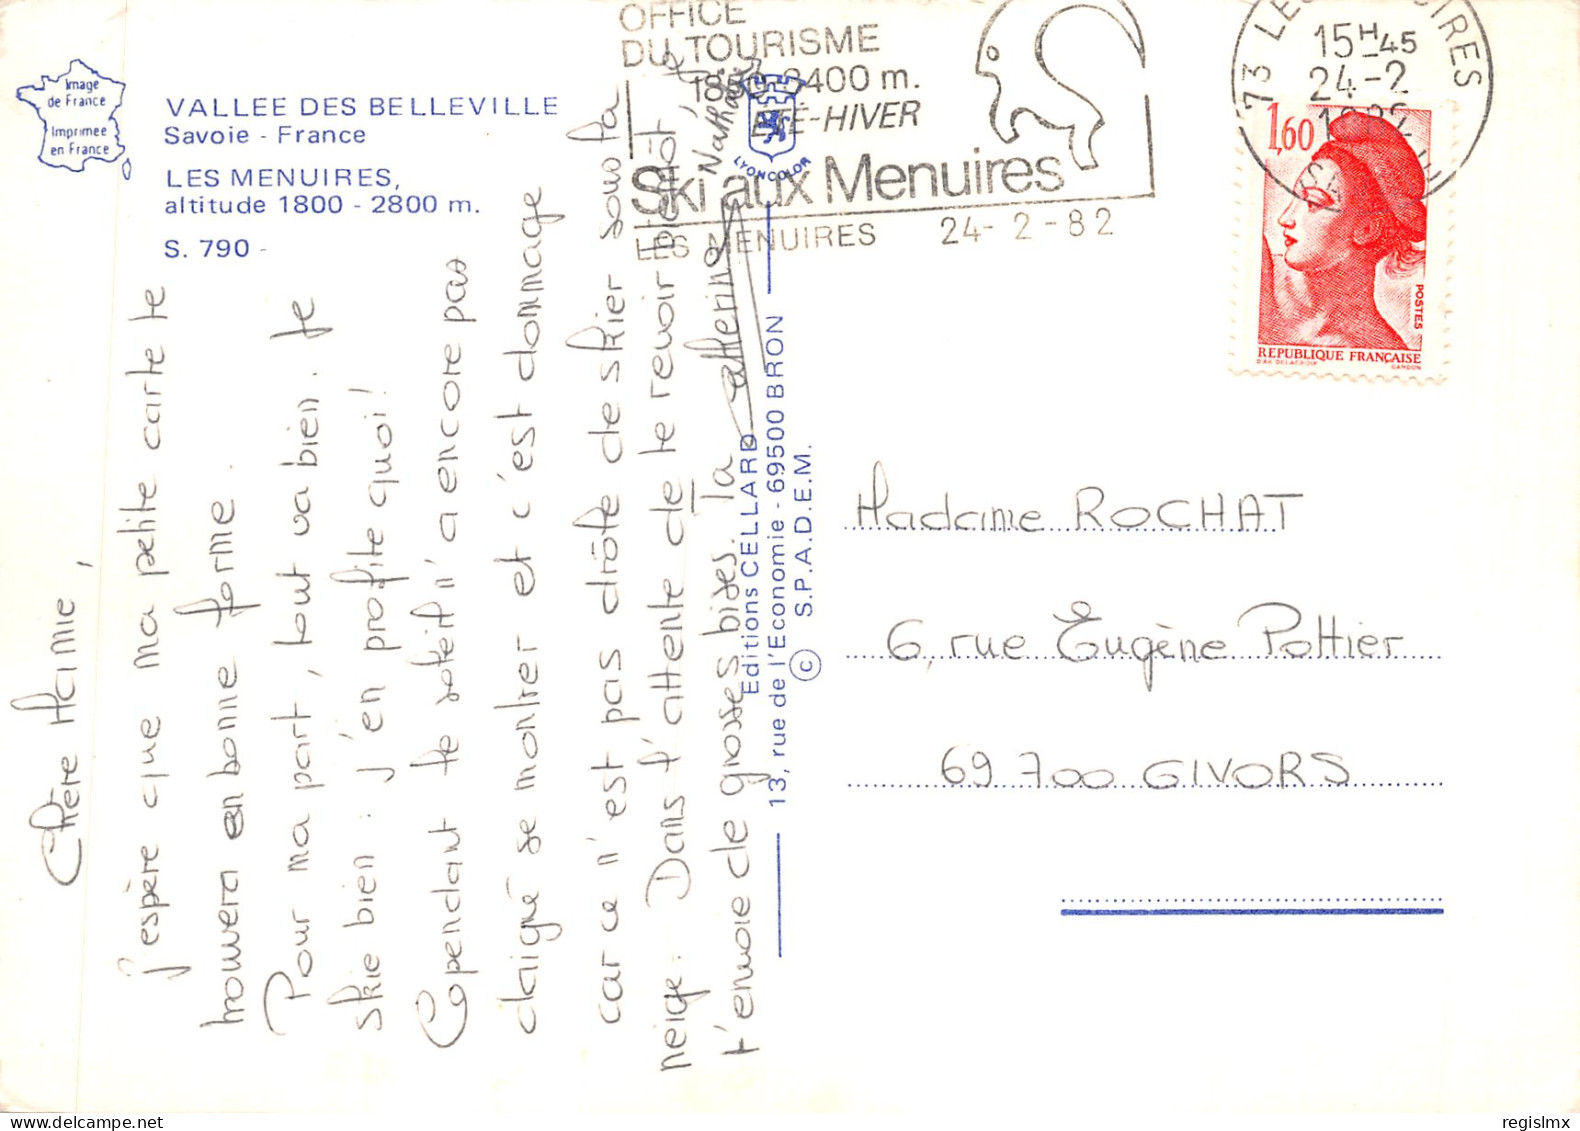 Image
de France
Imprimée
en France
VALLEE DES BELLEVILLE
Savoie - France
LES MENUIRES,
altitude 1800 - 2800 m.
S. 790 -
OFFICE
DU TOURISME
1850-3400 m.
ETÉ-HIVER
Ski aux Menuires
LES MENUIRES 24-2-82
73 LES MENUIRES
15H45
24-2
1982
1,60
POSTES
REPUBLIQUE FRANÇAISE
D'AP. DELACROIX GANDON
LYONCOLOR
Chère Mamie,
j'espère que ma petite carte te
trouvera en bonne forme.
Pour ma part, tout va bien. Je
skie bien : j'en profite quoi!
Cependant le soleil n'a encore pas
daigné se montrer et c'est dommage
car ce n'est pas drôle de skier sous la
neige. Dans l'attente de te revoir bientôt, je
t'envoie de grosses bises. Ta Catherine
Nathalie
Editions CELLARD
13, rue de l'Economie - 69500 BRON
© S.P.A.D.E.M.
Madame ROCHAT
6, rue Eugène Pottier
69700 GIVORS
regislmx